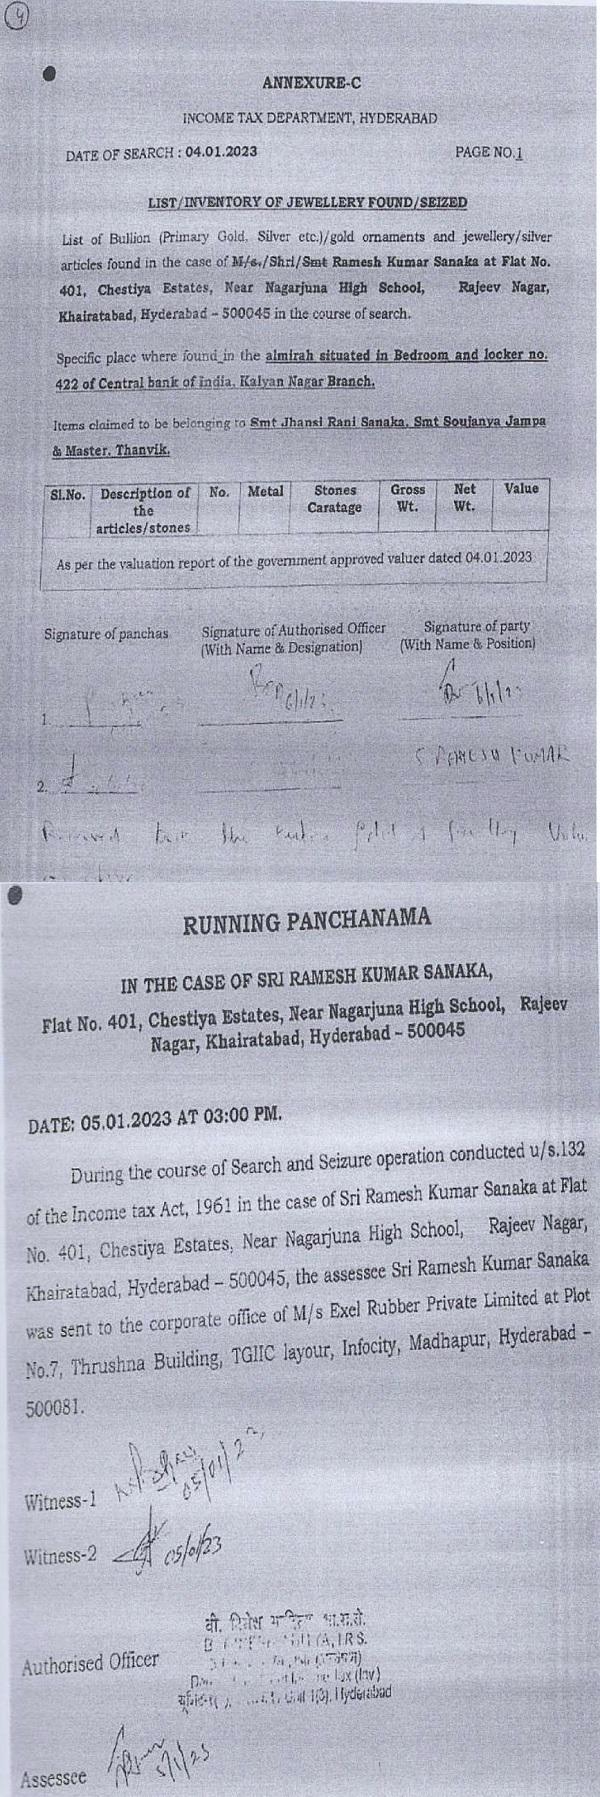 4
ANNEXURE-C
INCOME TAX DEPARTMENT, HYDERABAD
DATE OF SEARCH : 04.01.2023 PAGE NO.1
LIST/INVENTORY OF JEWELLERY FOUND/SEIZED
List of Bullion (Primary Gold, Silver etc.)/gold ornaments and jewellery/silver
articles found in the case of M/s./Shri/Smt Ramesh Kumar Sanaka at Flat No.
401, Chestiya Estates, Near Nagarjuna High School, Rajeev Nagar,
Khairatabad, Hyderabad – 500045 in the course of search.
Specific place where found in the almirah situated in Bedroom and locker no.
422 of Central bank of India, Kalyan Nagar Branch.
Items claimed to be belonging to Smt Jhansi Rani Sanaka, Smt Soujanya Jampa
& Master. Thanvik.
Sl.No. Description of the articles/stones No. Metal Stones Caratage Gross Wt. Net Wt. Value
As per the valuation report of the government approved valuer dated 04.01.2023
Signature of panchas Signature of Authorised Officer Signature of party
(With Name & Designation) (With Name & Position)
1. 6/1/23 6/1/23
S RAMESH KUMAR
2.
Received
RUNNING PANCHANAMA
IN THE CASE OF SRI RAMESH KUMAR SANAKA,
Flat No. 401, Chestiya Estates, Near Nagarjuna High School, Rajeev
Nagar, Khairatabad, Hyderabad – 500045
DATE: 05.01.2023 AT 03:00 PM.
During the course of Search and Seizure operation conducted u/s.132
of the Income tax Act, 1961 in the case of Sri Ramesh Kumar Sanaka at Flat
No. 401, Chestiya Estates, Near Nagarjuna High School, Rajeev Nagar,
Khairatabad, Hyderabad – 500045, the assessee Sri Ramesh Kumar Sanaka
was sent to the corporate office of M/s Exel Rubber Private Limited at Plot
No.7, Thrushna Building, TGIIC layour, Infocity, Madhapur, Hyderabad –
500081.
Witness-1 05/01/23
Witness-2 05/01/23
वी. भा.रा.से.
I.R.S.
Authorised Officer
Tax (Inv)
Unit 1(3), Hyderabad
Assessee 5/1/23